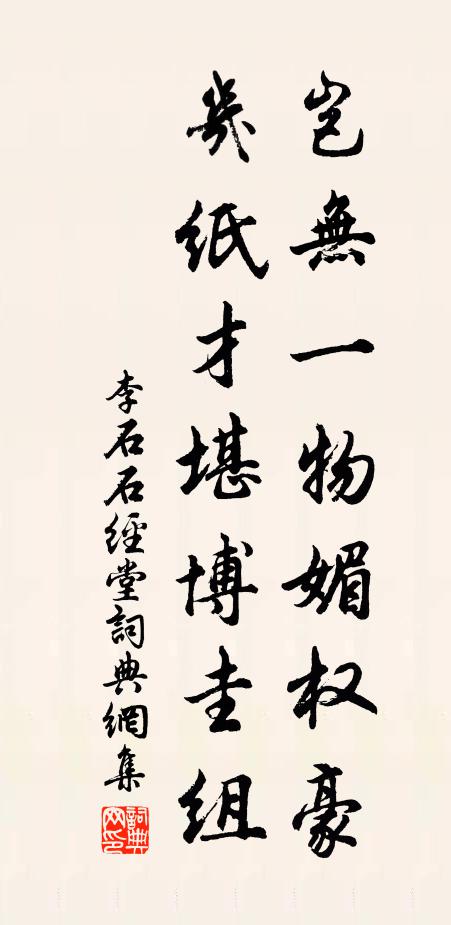 岂無一物媚权豪
幾紙才堪博圭组
李石石經堂詞典網集
詞典网印